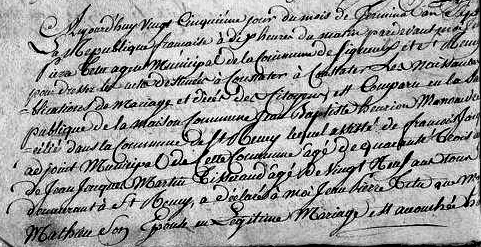 Aujourd'huy vingt cinquieme jour du mois de Germinal an Sept
La Republique française à dix heures du matin pardevant moi
Pierre Tetu ague Municipal de la Commune de et St Remy
pour dresser les actes destinés à Constater à Constater Les Naissances
publications de Mariage et décès des Citoyens est Comparu en la Salle
publique de la Maison Commune Jean Baptiste
cilié dans la Commune de St Remy lequel assisté de françois
adjoint Municipal de Cette Commune agé de quarante trois
de Jean Jacques Martin agé de vingt Neuf ans tous
demeurant à St Remy, a déclaré à moi Jean Pierre Tetu que
Mathieu Son Epouse en Légitime Mariage est accouchée